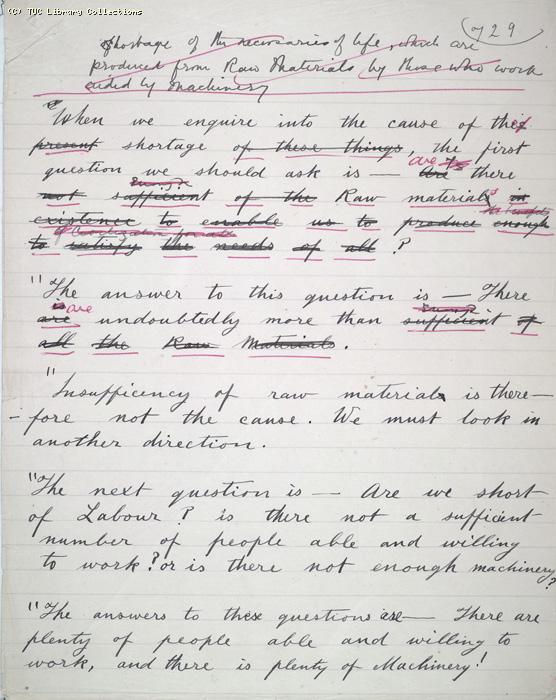 (C) TUC Library Collections
729
shortage of the necessaries of life, which are
produced from Raw Materials by those who work
aided by machinery
"When we enquire into the cause of the
present shortage of these things, the first
question we should ask is — are there
not sufficient of the Raw materials in
existence to enable us to produce enough
to satisfy the needs of all ?
"The answer to this question is — There
are undoubtedly more than sufficient of
all the Raw Materials.
"Insufficency of raw materials is there–
– fore not the cause. We must look in
another direction.
"The next question is — Are we short
of Labour? is there not a sufficient
number of people able and willing
to work? or is there not enough machinery
?
"The answers to these questions are — There are
plenty of people able and willing to
work, and there is plenty of Machinery!